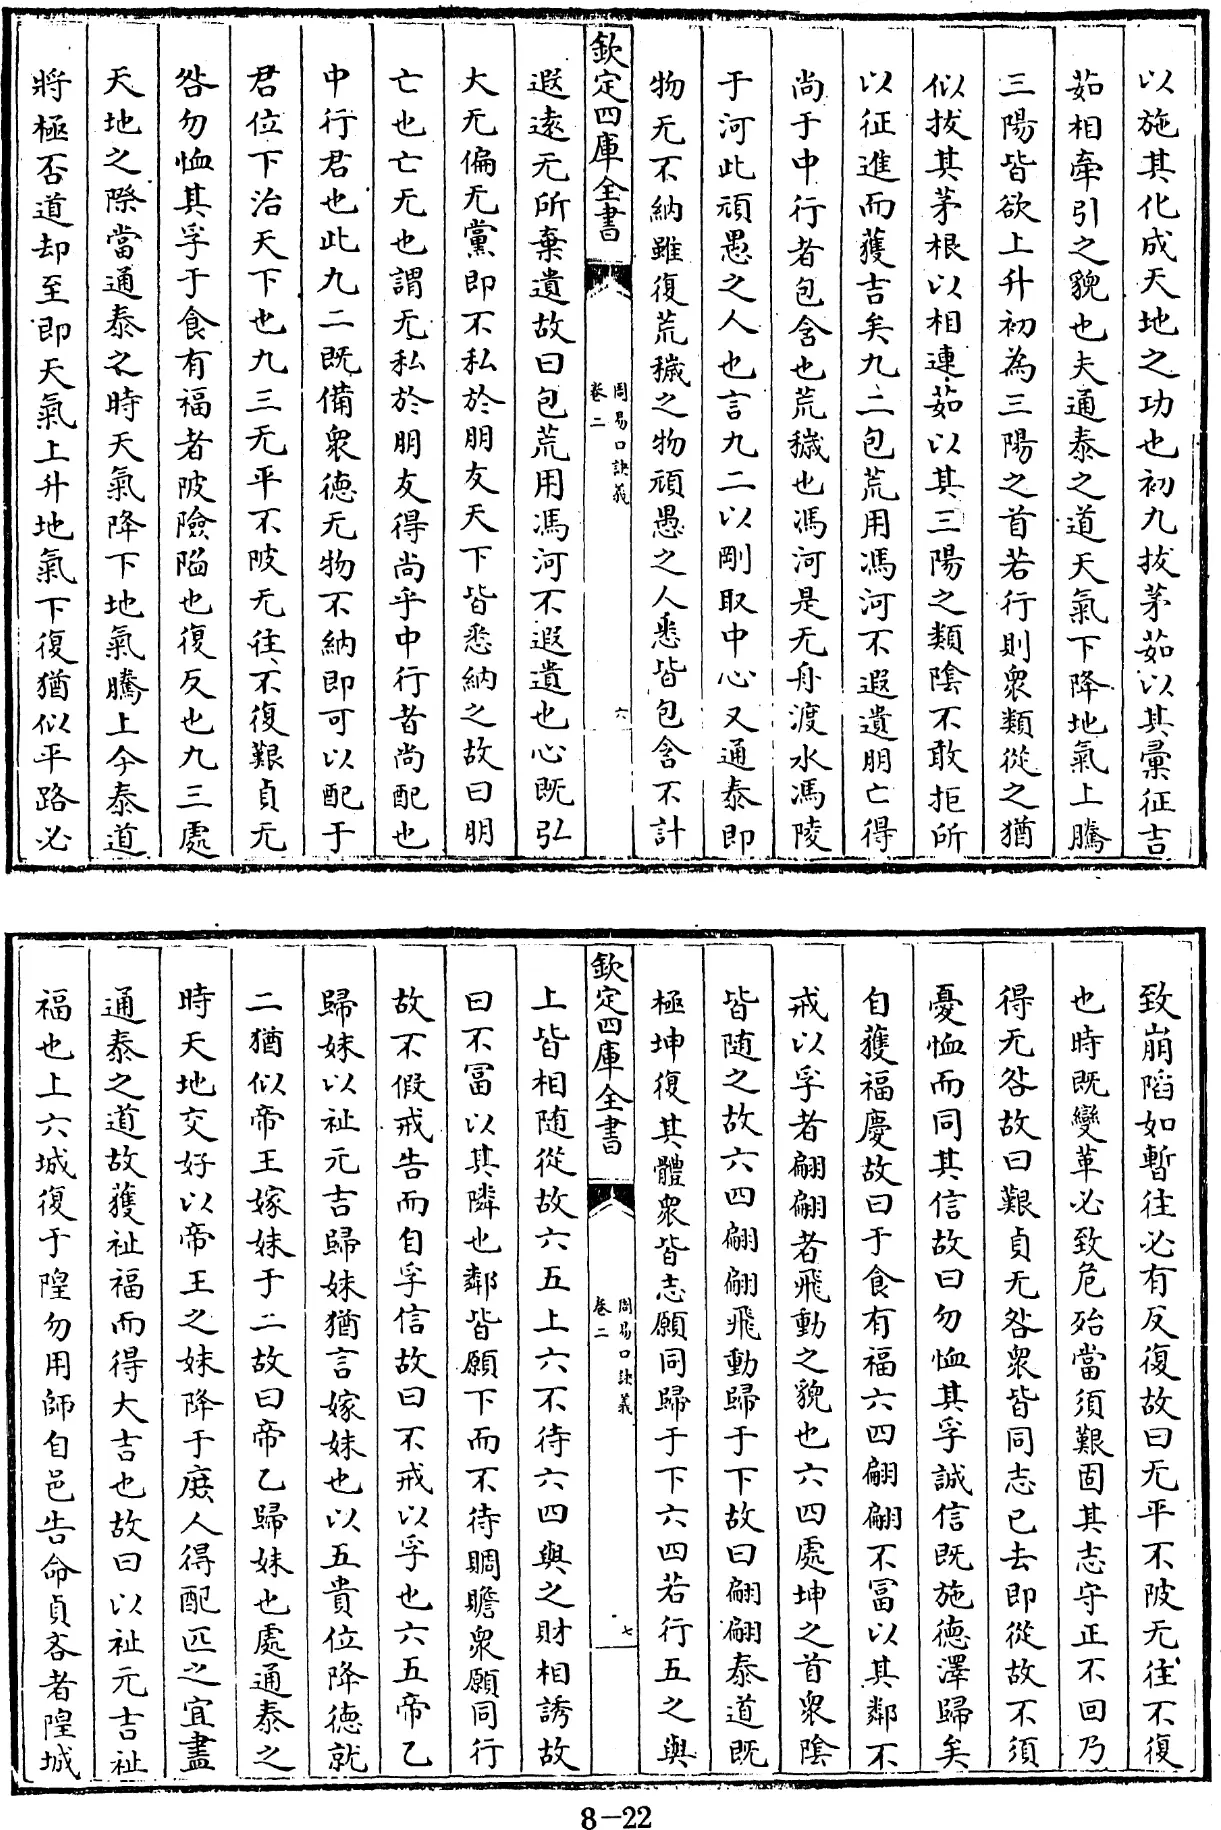 以施其化成天地之功也初九拔茅茹以其彙征吉
茹相牽引之貌也夫通泰之道天氣下降地氣上騰
三陽皆欲上升初為三陽之首若行則衆類從之猶
似拔其茅根以相連茹以其三陽之類陰不敢拒所
以征進而獲吉矣九二包荒用馮河不遐遺朋亡得
尚于中行者包含也荒穢也馮河是无舟渡水馮陵
于河此頑愚之人也言九二以剛取中心又通泰即
物无不納雖復荒穢之物頑愚之人悉皆包含不計
欽定四庫全書
周易口訣義
卷二
六
遐遠无所棄遺故曰包荒用馮河不遐遺也心既弘
大无偏无黨即不私於朋友天下皆悉納之故曰朋
亡也亡无也謂无私於朋友得尚乎中行者尚配也
中行君也此九二既備衆德无物不納即可以配于
君位下治天下也九三无平不陂无往不復艱貞无
咎勿恤其孚于食有福者陂險陷也復反也九三處
天地之際當通泰之時天氣降下地氣騰上今泰道
將極否道却至即天氣上升地氣下復猶似平路必
致崩陷如暫往必有反復故曰无平不陂无往不復
也時既變革必致危殆當須艱固其志守正不回乃
得无咎故曰艱貞无咎衆皆同志已去即從故不須
憂恤而同其信故曰勿恤其孚誠信既施德澤歸矣
自獲福慶故曰于食有福六四翩翩不富以其鄰不
戒以孚者翩翩者飛動之貌也六四處坤之首衆陰
皆随之故六四翩翩飛動歸于下故曰翩翩泰道既
極坤復其體衆皆志願同歸于下六四若行五之與
欽定四庫全書
周易口訣義
卷二
七
上皆相随從故六五上六不待六四與之財相誘故
曰不富以其隣也鄰皆願下而不待賙贍衆願同行
故不假戒告而自孚信故曰不戒以孚也六五帝乙
歸妹以祉元吉歸妹猶言嫁妹也以五貴位降德就
二猶似帝王嫁妹于二故曰帝乙歸妹也處通泰之
時天地交好以帝王之妹降于庶人得配匹之宜盡
通泰之道故獲祉福而得大吉也故曰以祉元吉祉
福也上六城復于隍勿用師自邑告命貞吝者隍城
8-22